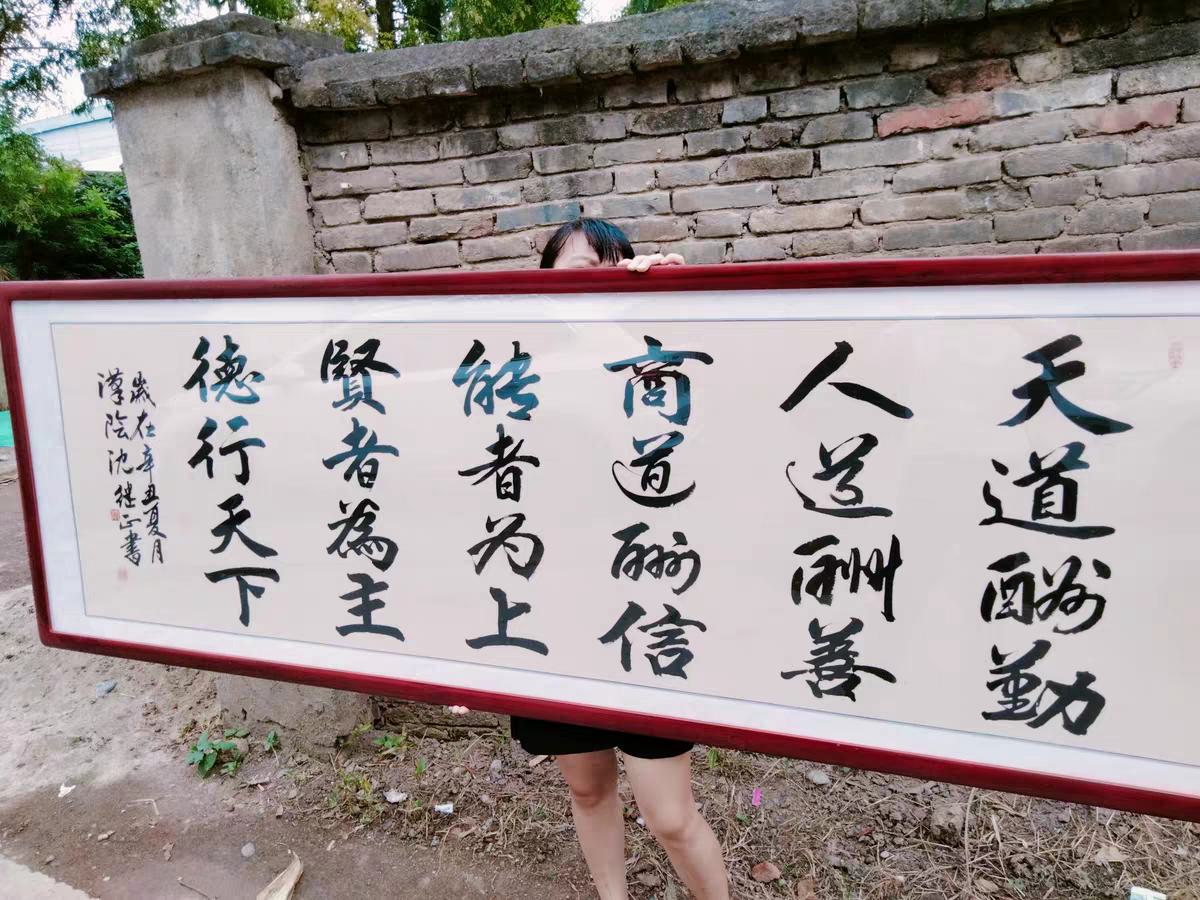 天道酬勤
人道酬善
商道酬信
能者为上
賢者為主
德行天下
歲在辛丑夏月
漢陰沈继正書